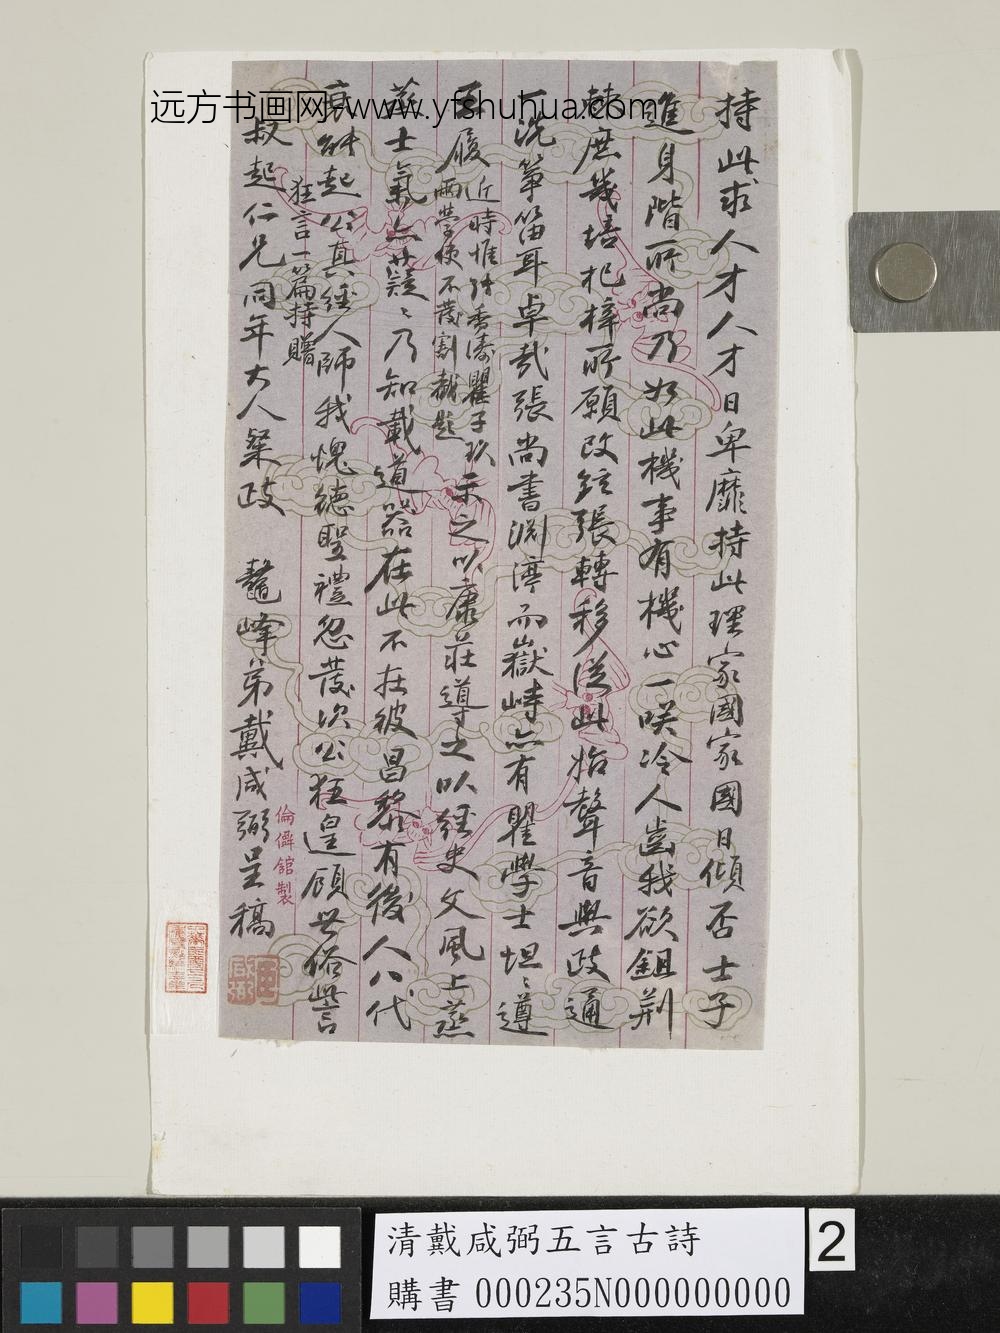 远方书画网, www.yfshuhua.com
持此求人才人才日卑靡持此理家國家國日傾否士子
進身階所尚乃如此機事有機心一咲冷人齒我欲鉏荊
棘庶幾培杞梓所願改絃張轉移從此始聲音與政通
一洗箏笛耳卓哉張尚書淵渟而嶽峙亦有瞿學士坦〻遵
履
近時惟張香濤瞿子玖
兩學使不發割截題
示之以康莊導之以經史文風上蒸蒸
士氣亦薿〻乃知載道器在此不在彼昌黎有後人八代
衰能起公真經人師我愧德聖禮忽發次公狂遑顧世俗訾
狂言一篇持贈
叔起仁兄同年大人粲政 鼇峰弟戴咸弼呈稿
倫儕舘製
咸弼
清戴咸弼五言古詩
購書 000235N000000000
2